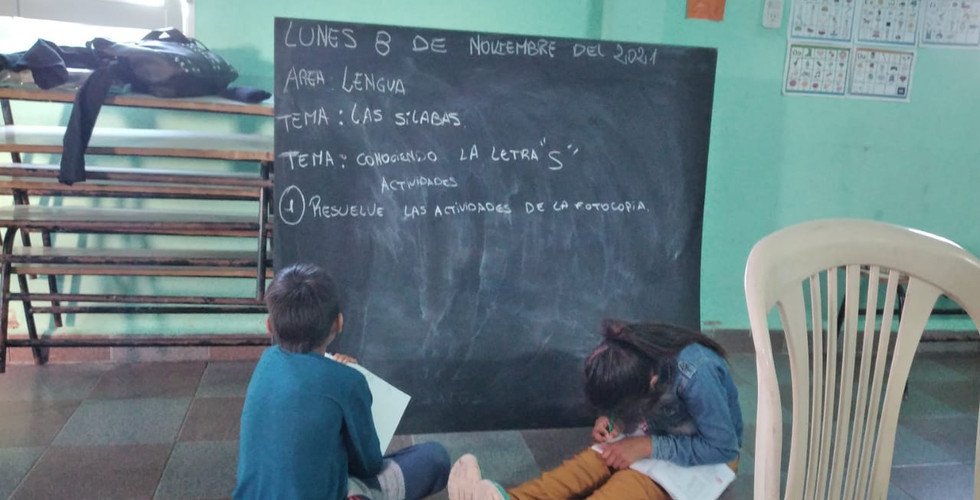 LUNES 8 DE NOVIEMBRE DEL 2,021
AREA LENGUA
TEMA: LAS SíLABAS.
TEMA: CONOCIENDO LA LETRA "S"
ACTIVIDADES
1 RESUELVE LAS ACTIVIDADES DE LA FOTOCOPIA.